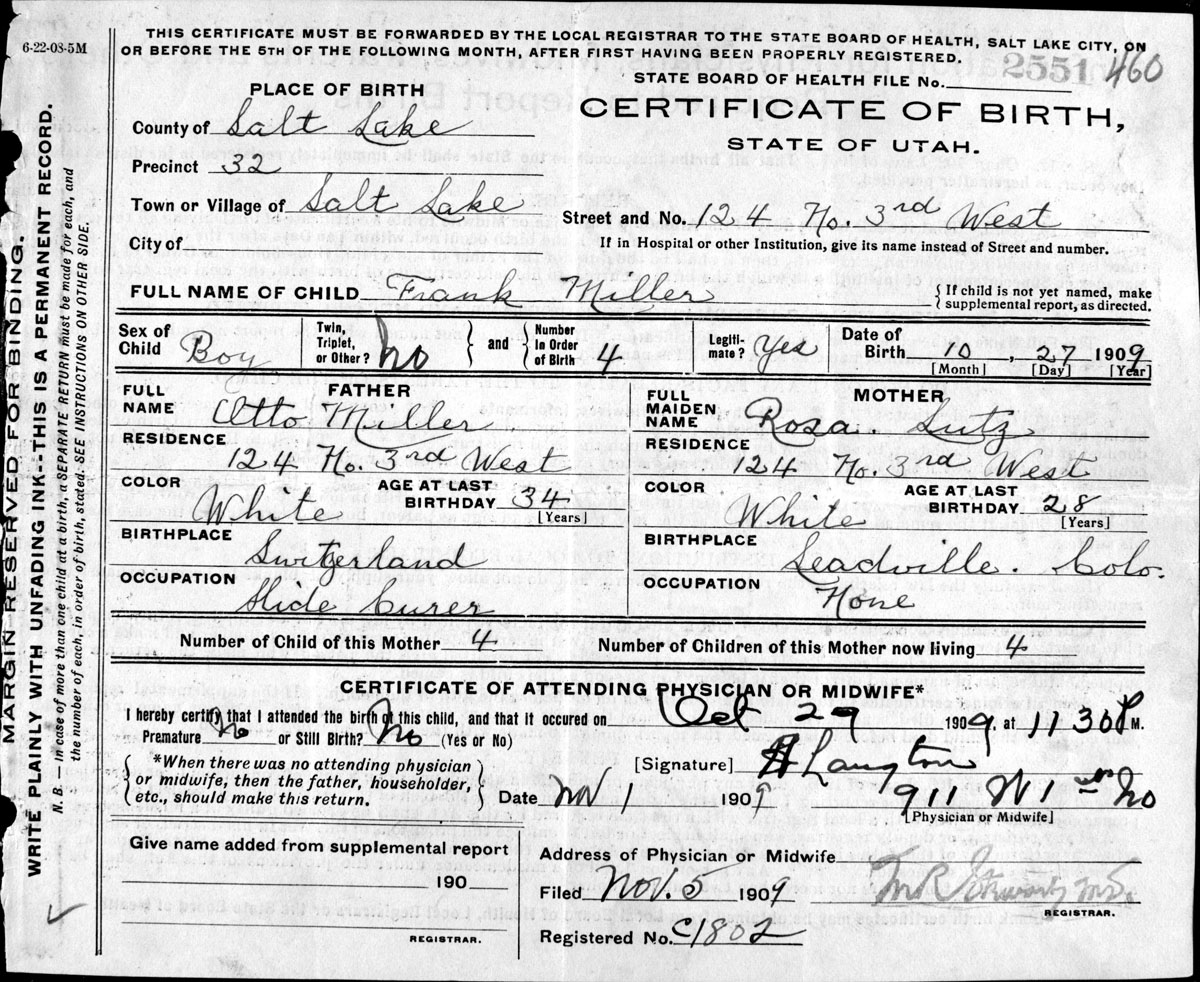 6-22-08-5M
THIS CERTIFICATE MUST BE FORWARDED BY THE LOCAL REGISTRAR TO THE STATE BOARD OF HEALTH, SALT LAKE CITY, ON
OR BEFORE THE 5TH OF THE FOLLOWING MONTH, AFTER FIRST HAVING BEEN PROPERLY REGISTERED.
STATE BOARD OF HEALTH FILE No. 2551 460
PLACE OF BIRTH
CERTIFICATE OF BIRTH,
STATE OF UTAH.
County of Salt Lake
Precinct 32
Town or Village of Salt Lake
Street and No. 124 No. 3rd West
City of
If in Hospital or other Institution, give its name instead of Street and number.
FULL NAME OF CHILD Frank Miller
{ If child is not yet named, make
supplemental report, as directed.
Sex of Child Boy
Twin, Triplet, or Other? No } and { Number in Order of Birth 4
Legiti-mate? Yes
Date of Birth 10, 27 1909
[Month] [Day] [Year]
FATHER
FULL NAME Otto Miller
RESIDENCE
124 No. 3rd West
COLOR White
AGE AT LAST BIRTHDAY 34
[Years]
BIRTHPLACE
Switzerland
OCCUPATION
Hide Curer
MOTHER
FULL MAIDEN NAME Rosa Lutz
RESIDENCE
124 No. 3rd West
COLOR White
AGE AT LAST BIRTHDAY 28
[Years]
BIRTHPLACE
Leadville. Colo.
OCCUPATION
None
Number of Child of this Mother 4
Number of Children of this Mother now living 4
CERTIFICATE OF ATTENDING PHYSICIAN OR MIDWIFE*
I hereby certify that I attended the birth of this child, and that it occured on Oct 29 1909, at 11 30 P M.
Premature No or Still Birth? No (Yes or No)
{ *When there was no attending physician
or midwife, then the father, householder,
etc., should make this return. }
[Signature] Langton
Date Nov 1 1909
911 W 1 No
[Physician or Midwife]
Give name added from supplemental report
190
REGISTRAR.
Address of Physician or Midwife
Filed Nov. 5 1909
REGISTRAR.
Registered No. C1802
MARGIN RESERVED FOR BINDING.
WRITE PLAINLY WITH UNFADING INK--THIS IS A PERMANENT RECORD.
N. B.—In case of more than one child at a birth, a SEPARATE RETURN must be made for each, and
the number of each, in order of birth, stated. SEE INSTRUCTIONS ON OTHER SIDE.